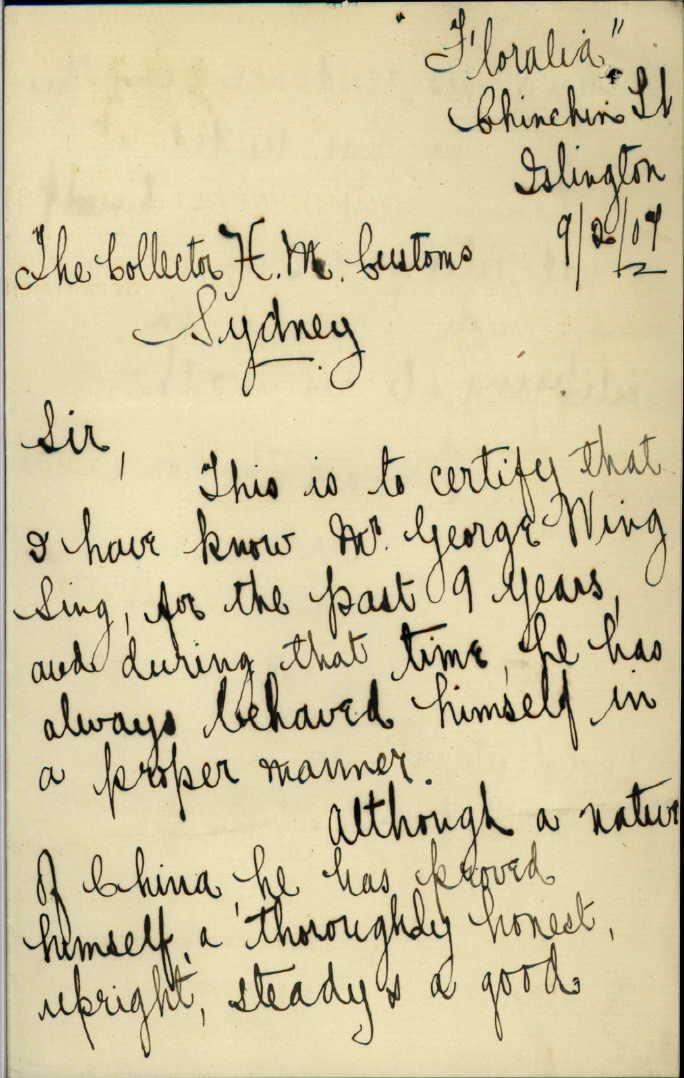 "Floralia"
Chinchin St
Islington
9/2/07
The Collector H. M. Customs
Sydney
Sir,
This is to certify that
I have know Mr. George Wing
Sing, for the past 9 years,
and during that time, he has
always behaved himself in
a proper manner.
Although a native
of China, he has proved
himself, a thoroughly honest,
upright, steady & a good